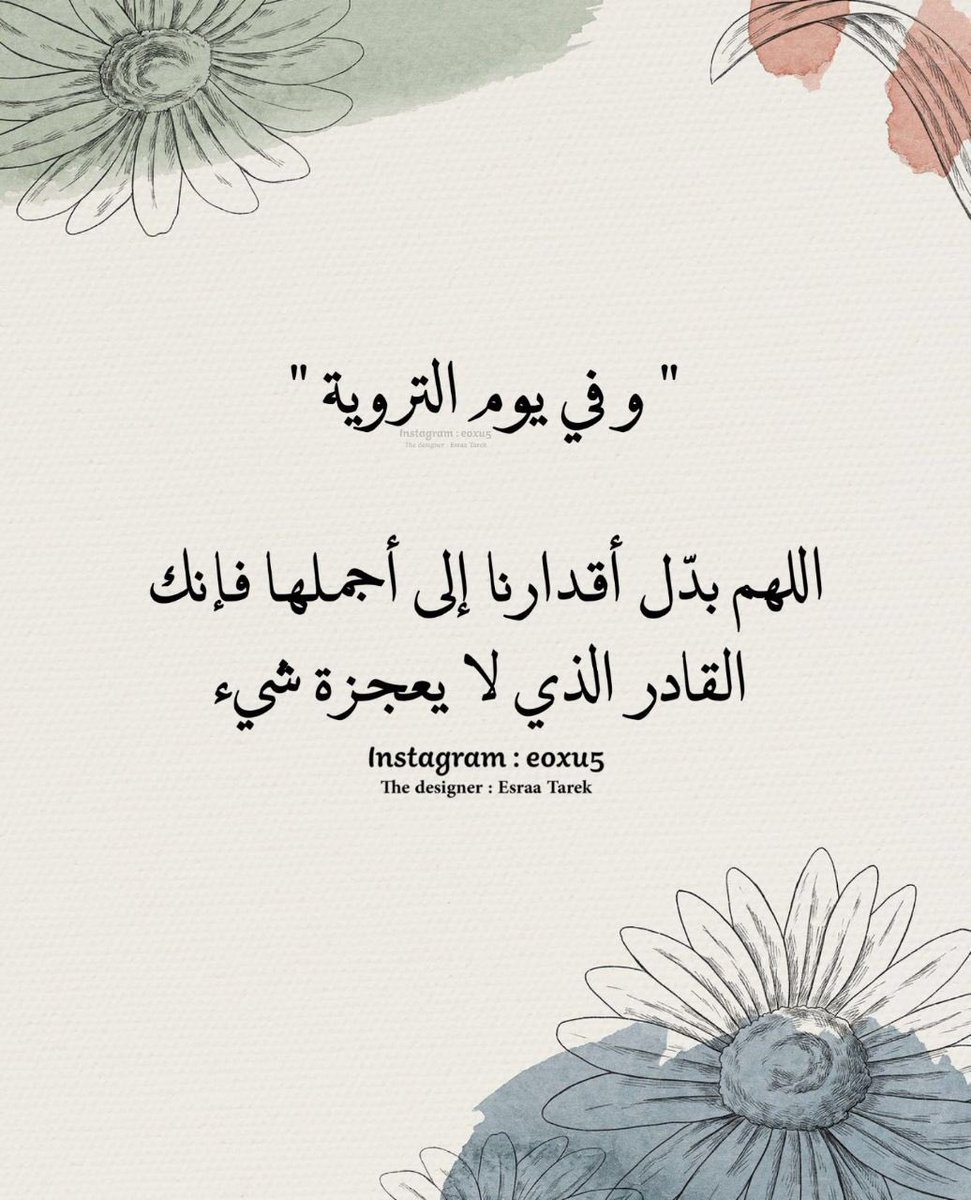 " و في يوم التروية "
Instagram : eoxu5
The designer : Esraa Tarek
اللهم بدّل أقدارنا إلى أجملها فإنك
القادر الذي لا يعجزة شيء
Instagram : eoxu5
The designer : Esraa Tarek